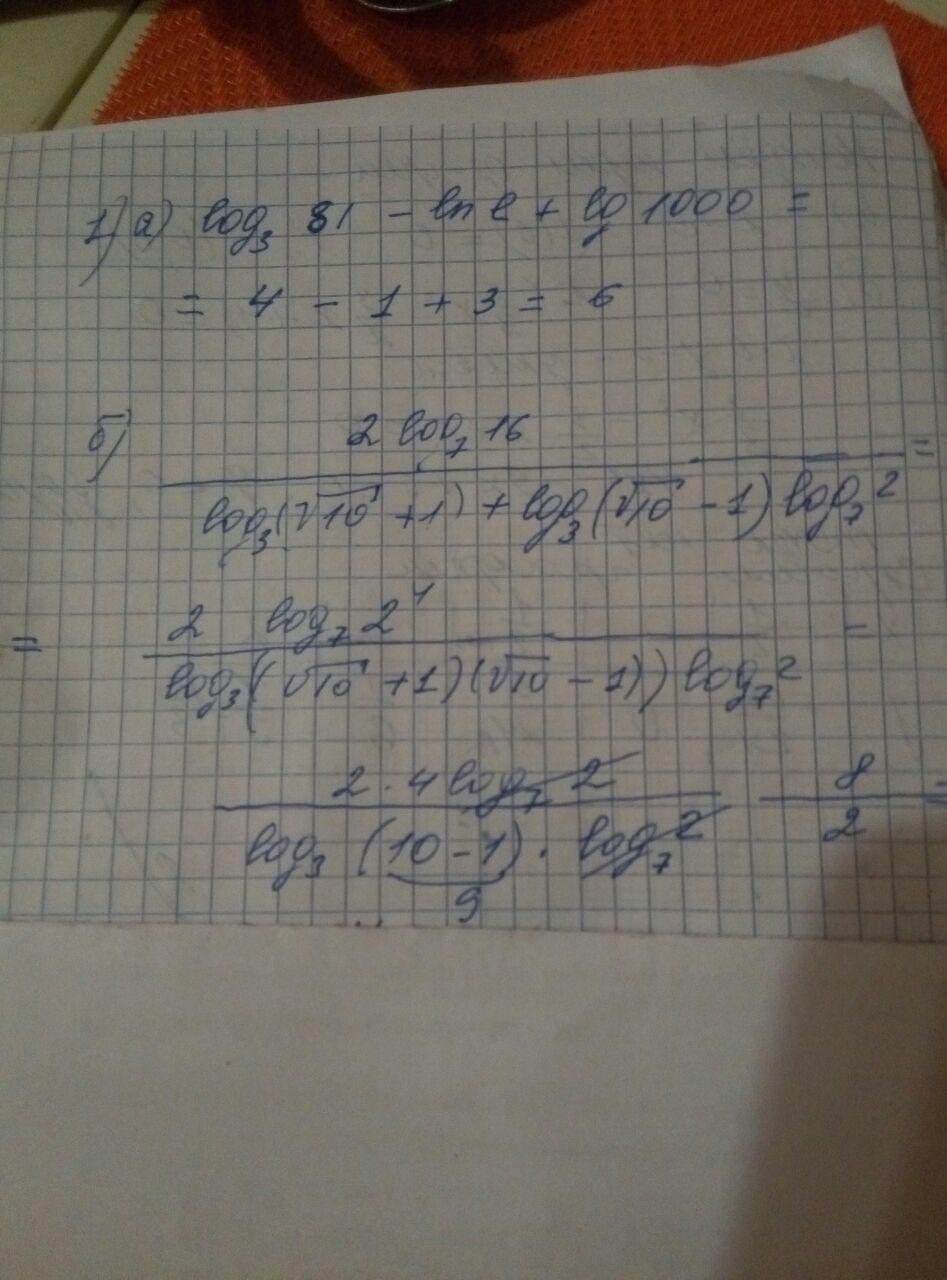 1) а) log₃ 81 - ln e + lg 1000 =
= 4 - 1 + 3 = 6
б) 2 log₇ 16
log₃(√10 + 1) + log₃(√10 - 1) log₇ 2 =
= 2 log₇ 2⁴ -
log₃(√10 + 1)(√10 - 1)) log₇ 2
2 · 4 log₇ 2 8
log₃ (10 - 1) · log₇ 2 2 =
9